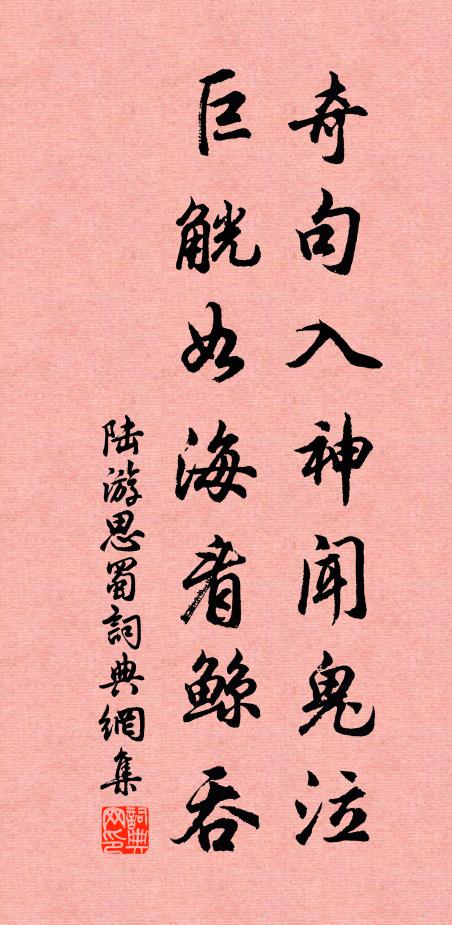 奇句入神闻鬼泣
巨觥如海看鲸吞
陆游思蜀詞典網集
詞典网印